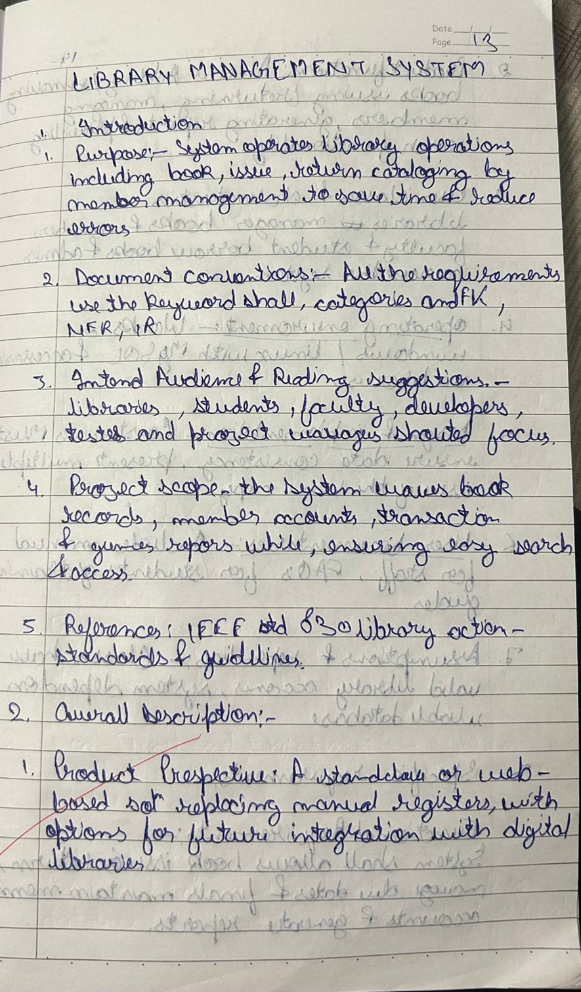 Date
Page 13
LIBRARY MANAGEMENT SYSTEM
1. Introduction
1. Purpose:- System operates library operations
including book, issue, return cataloging by
member management to save time & reduce
errors
2. Document conventions:- All the requirements
use the keyword shall, categories and FK,
NFR, IR
3. Intend Audience & Reading suggestions.-
libraries, students, faculty, developers,
testes and project manages should focus.
4. Project scope- the system maves book
records, member accounts, transaction
& repors while, ensuring easy search
& access.
5. References: IEEE std 830 library action-
standards & guidelines.
2. Overall Description:-
1. Product Prespective: A or web-
based replacing manual registers, with
options for future integration with digital
libraries